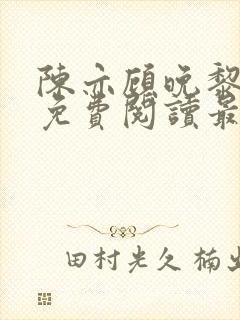 陳亦顧晚黎
免費閱讀最
田村光久 楠出